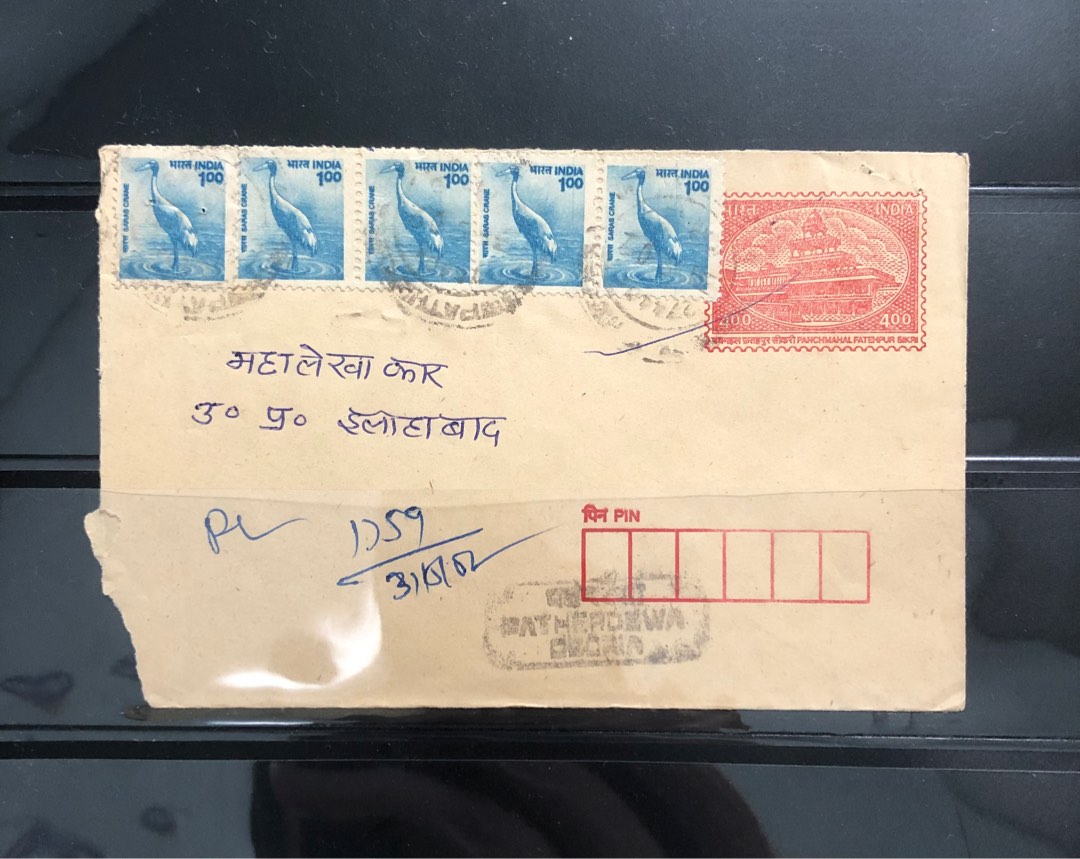 भारत INDIA
100
सारस SARAS CRANE
भारत INDIA
100
सारस SARAS CRANE
भारत INDIA
100
सारस SARAS CRANE
भारत INDIA
100
सारस SARAS CRANE
भारत INDIA
100
सारस SARAS CRANE
भारत INDIA
400 400
पंचमहल फतेहपुर सीकरी PANCHMAHAL FATEHPUR SIKRI
महालेखाकार
उ० प्र० इलाहाबाद
पिन PIN
PATHERDEWA
DEORIA